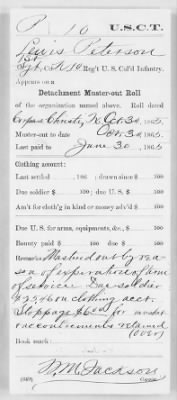 P 10 U.S.C.T.
Lewis Peterson
Sgt, Co. K, 10 Reg't U. S. Col'd Infantry.
Appears on a
Detachment Muster-out Roll
of the organization named above. Roll dated
Corpus Christi, Oct 30, 1865.
Muster-out to date Oct 30, 1865.
Last paid to June 30, 1865.
Clothing account:
Last settled , 186 ; drawn since $ 100
Due soldier $ 100 ; due U. S. $ 100
Am't for cloth'g in kind or money adv'd $ 100
Due U. S. for arms, equipments, &c., $ 100
Bounty paid $ 100 ; due $ 100
Remarks: Mustered out by rea-
son of expiration of term
of service. Due soldier
on clothing acct.
Stoppage $6.00 for musket
& accoutrements retained
(over)
Book mark:
W. M. Jackson
Copyist.